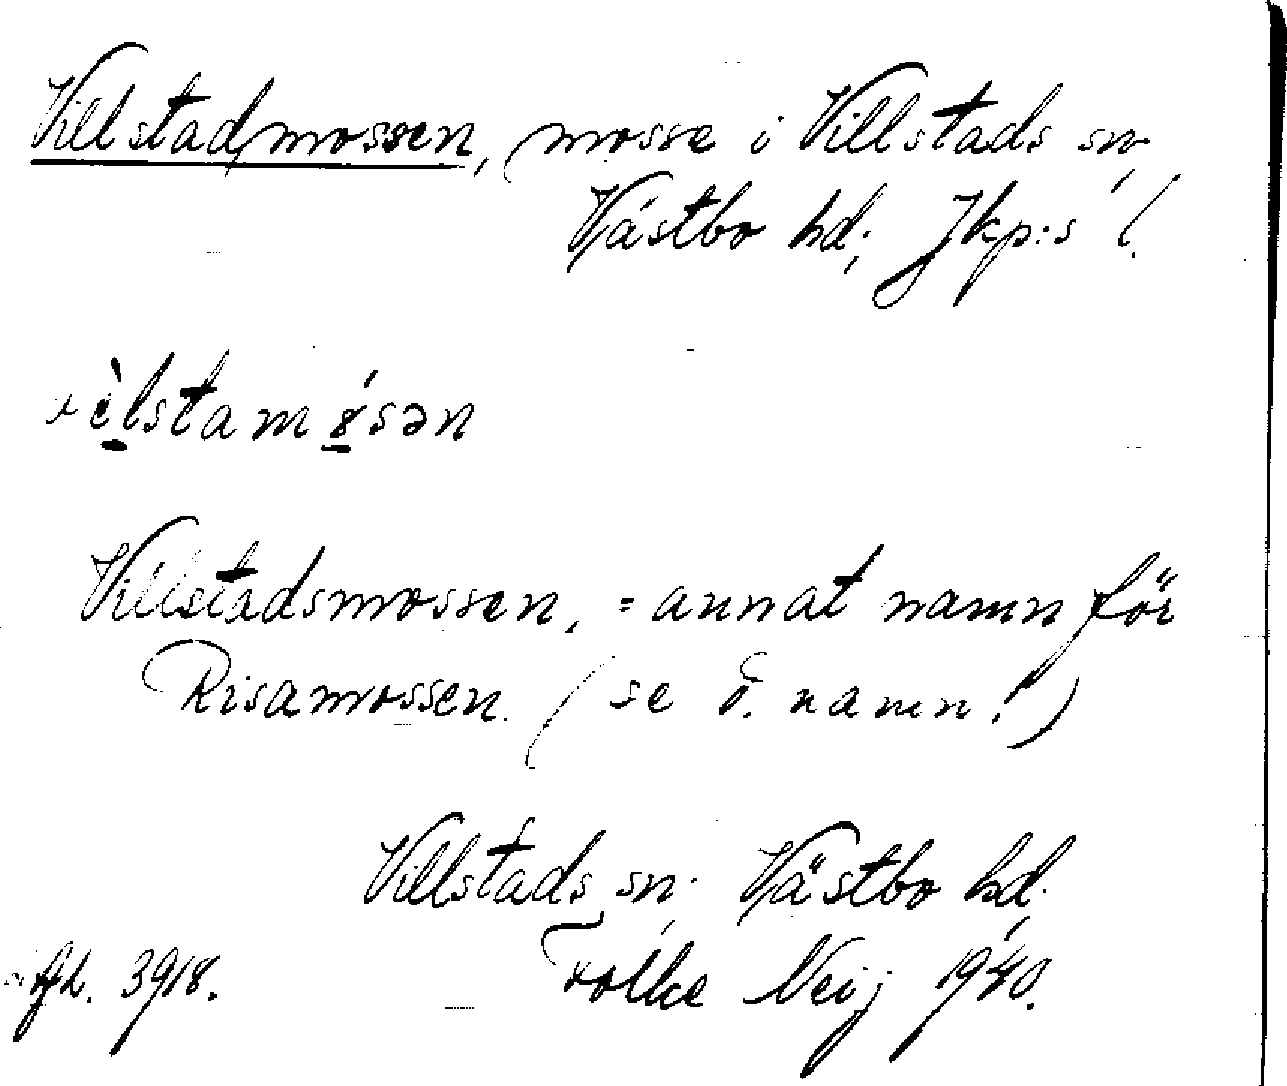 Villstadmossen, mosse i Villstads sn,
Västbo hd; Jkp:s l.
vèlstamósən
Villstadsmossen, = annat namn för
Risamossen. (se d. namn!)
Villstads sn; Västbo hd;
3918. Folke Neij 1940.